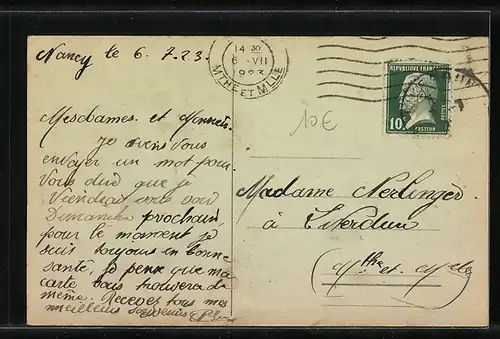 Nancy le 6.7.23.
14 30
6 VII
1923
MTHE ET MLLE
REPUBLIQUE FRANÇAISE
10c
POSTES
PASTEUR
10 €
Mesdames et
Je viens vous
envoyer un mot pour
vous dire que je
viendrait vous voir
Dimanche prochain
pour le moment je
suis toujours en bonne
santé, je pense que ma
carte vous trouvera de
même. Recevez tous mes
meilleurs souvenirs
Madame Nerlinger
à Liverdun
(Mthe et Melle)